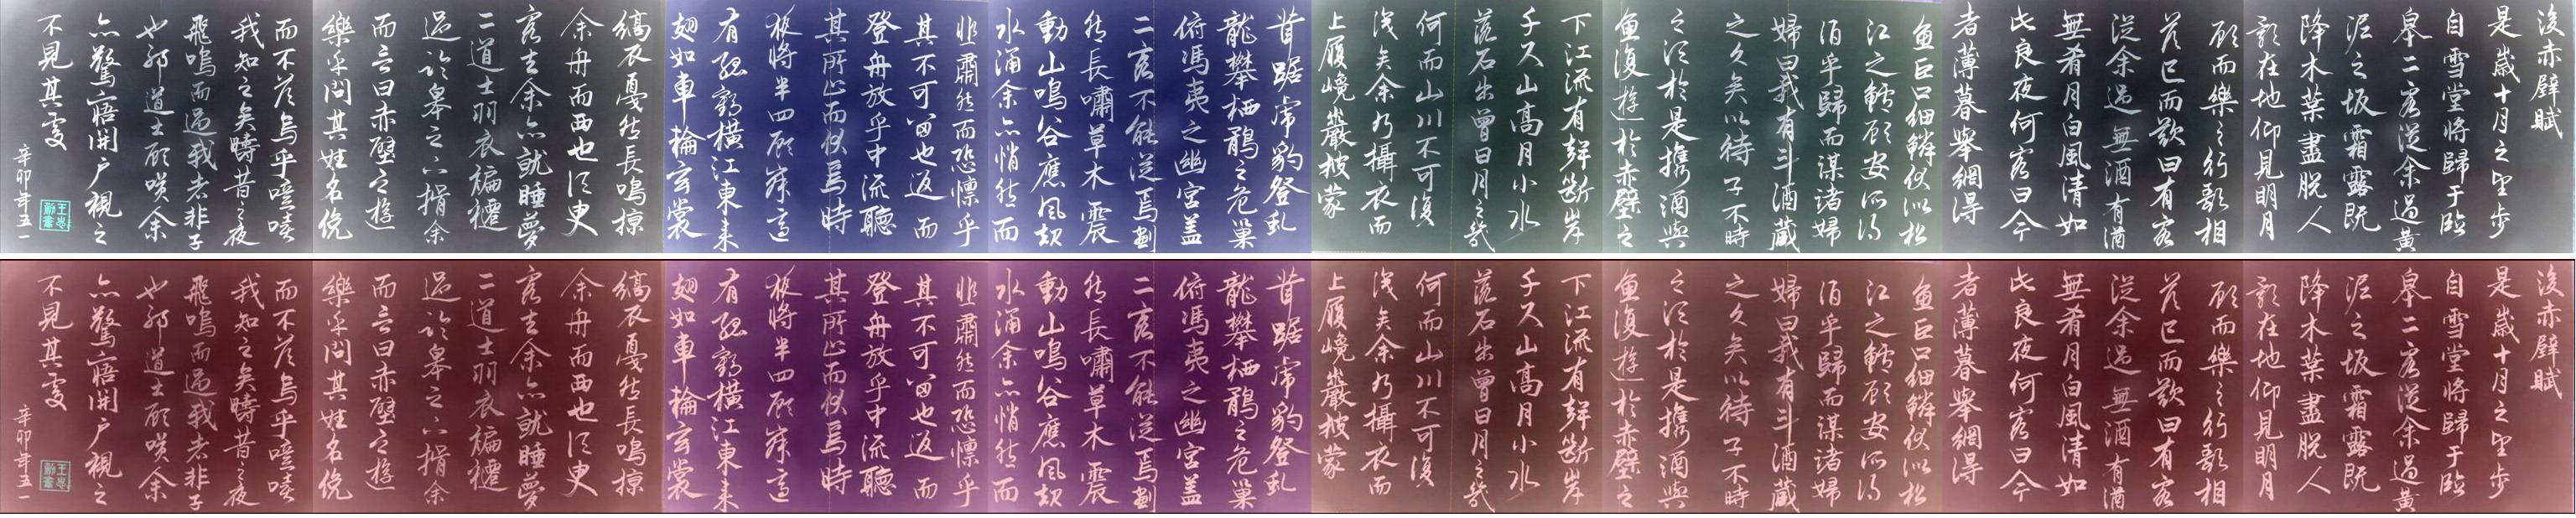 後赤壁賦
是歲十月之望步
自雪堂將歸于臨
皋二客從余過黃
泥之坂霜露既
降木葉盡脫人
影在地仰見明月
顧而樂之行歌相
答已而歎曰有客
從余過無酒有酒
無肴月白風清如
此良夜何客曰今
者薄暮舉網得
魚巨口細鱗似松
江之鱸顧安所得
酒乎歸而謀諸婦
婦曰我有斗酒藏
之久矣以待子不時
之須於是攜酒與
魚復遊於赤壁之
下江流有聲斷岸
千尺山高月小水
落石出曾日月之幾
何而山川不可復
識矣余乃攝衣而
上履巉巖披蒙
茸踞虎豹登虬
龍攀栖鶻之危巢
俯馮夷之幽宮蓋
二客不能從焉劃
然長嘯草木震
動山鳴谷應風起
水涌余亦悄然而
悲肅然而恐懍乎
其不可留也返而
登舟放乎中流聽
其所止而休焉時
夜將半四顧寂適
有孤鶴橫江東來
翅如車輪玄裳
縞衣戛然長鳴掠
余舟而西也須臾
客去余亦就睡夢
二道士羽衣褊褼
過臨皋之下揖余
而言曰赤壁之遊
樂乎問其姓名俛
而不答烏乎噫嘻
我知之矣疇昔之夜
飛鳴而過我者非子
也耶道士顧笑余
亦驚寤開戶視之
不見其處
辛卯年五一
後赤壁賦
是歲十月之望步
自雪堂將歸于臨
皋二客從余過黃
泥之坂霜露既
降木葉盡脫人
影在地仰見明月
顧而樂之行歌相
答已而歎曰有客
從余過無酒有酒
無肴月白風清如
此良夜何客曰今
者薄暮舉網得
魚巨口細鱗似松
江之鱸顧安所得
酒乎歸而謀諸婦
婦曰我有斗酒藏
之久矣以待子不時
之須於是攜酒與
魚復遊於赤壁之
下江流有聲斷岸
千尺山高月小水
落石出曾日月之幾
何而山川不可復
識矣余乃攝衣而
上履巉巖披蒙
茸踞虎豹登虬
龍攀栖鶻之危巢
俯馮夷之幽宮蓋
二客不能從焉劃
然長嘯草木震
動山鳴谷應風起
水涌余亦悄然而
悲肅然而恐懍乎
其不可留也返而
登舟放乎中流聽
其所止而休焉時
夜將半四顧寂適
有孤鶴橫江東來
翅如車輪玄裳
縞衣戛然長鳴掠
余舟而西也須臾
客去余亦就睡夢
二道士羽衣褊褼
過臨皋之下揖余
而言曰赤壁之遊
樂乎問其姓名俛
而不答烏乎噫嘻
我知之矣疇昔之夜
飛鳴而過我者非子
也耶道士顧笑余
亦驚寤開戶視之
不見其處
辛卯年五一